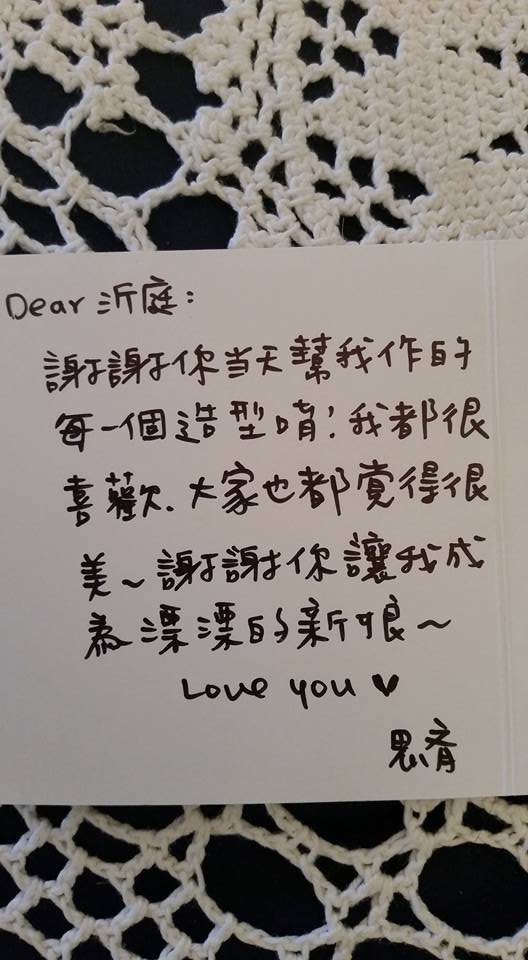 Dear 沂庭：
謝謝你当天幫我作的
每一個造型唷！我都很
喜歡．大家也都覺得很
美～謝謝你讓我成
為漂漂的新娘～
Love you ♥
思齊